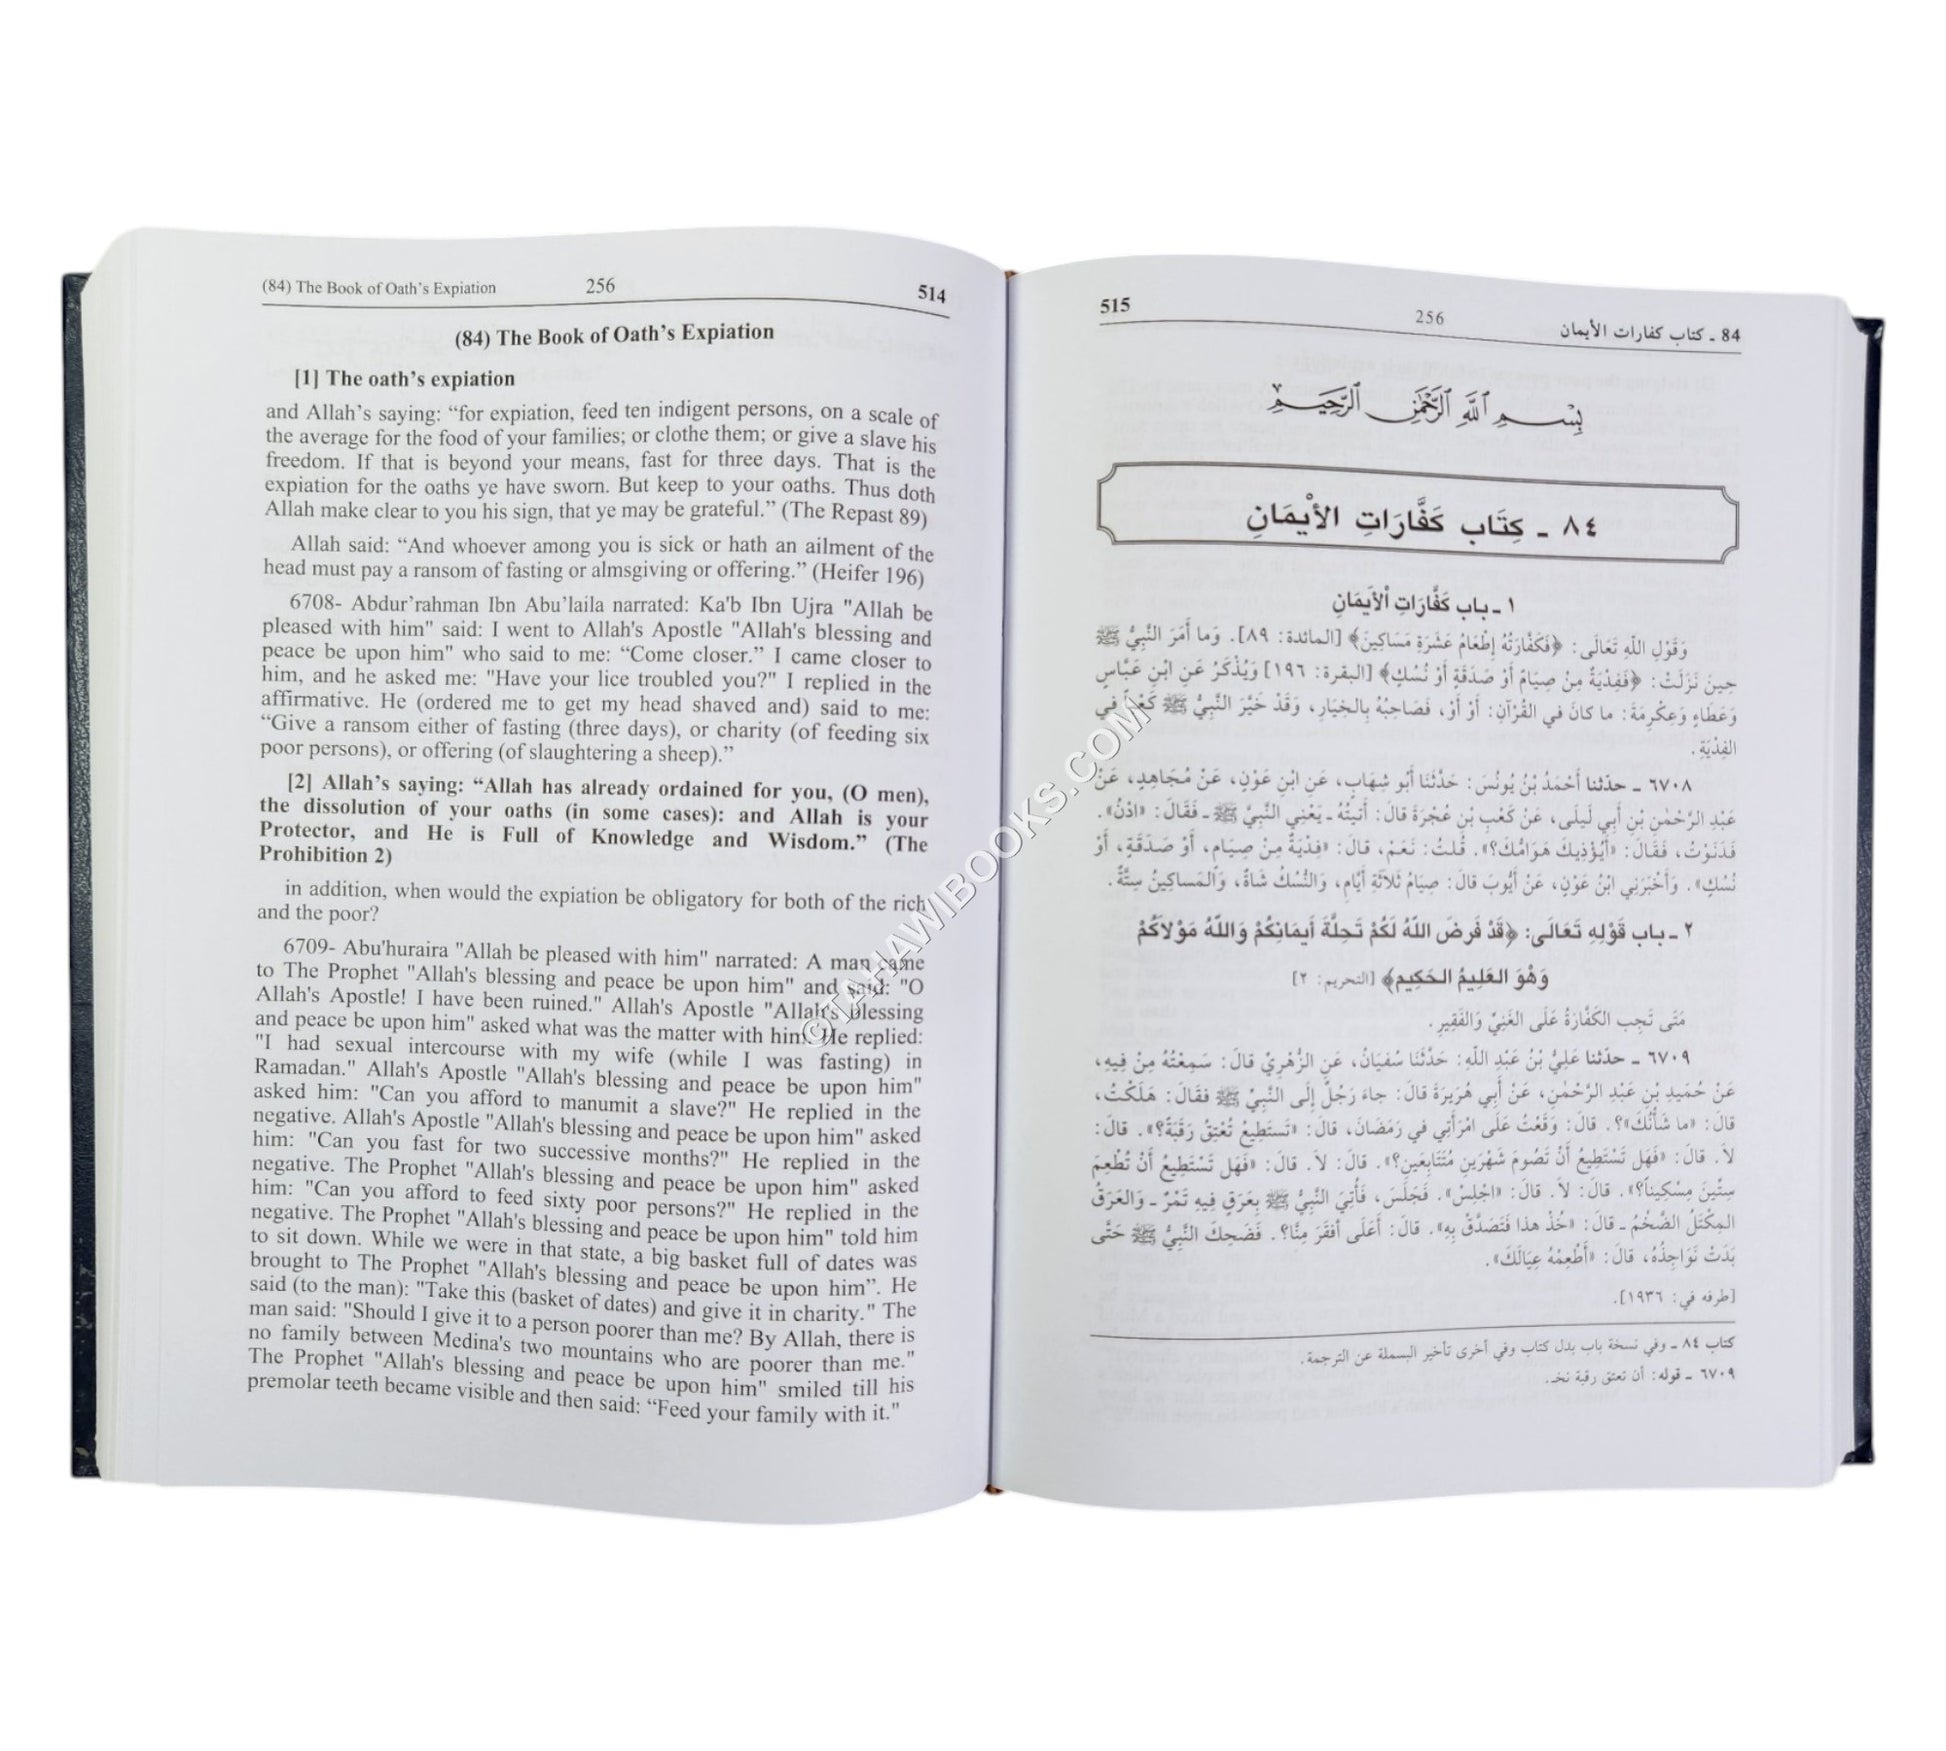 (84) The Book of Oath’s Expiation 256 514
(84) The Book of Oath’s Expiation
[1] The oath’s expiation
and Allah’s saying: “for expiation, feed ten indigent persons, on a scale of
the average for the food of your families; or clothe them; or give a slave his
freedom. If that is beyond your means, fast for three days. That is the
expiation for the oaths ye have sworn. But keep to your oaths. Thus doth
Allah make clear to you his sign, that ye may be grateful.” (The Repast 89)
Allah said: “And whoever among you is sick or hath an ailment of the
head must pay a ransom of fasting or almsgiving or offering.” (Heifer 196)
6708- Abdur’rahman Ibn Abu’laila narrated: Ka'b Ibn Ujra "Allah be
pleased with him" said: I went to Allah's Apostle "Allah's blessing and
peace be upon him" who said to me: “Come closer.” I came closer to
him, and he asked me: "Have your lice troubled you?" I replied in the
affirmative. He (ordered me to get my head shaved and) said to me:
“Give a ransom either of fasting (three days), or charity (of feeding six
poor persons), or offering (of slaughtering a sheep).”
[2] Allah’s saying: “Allah has already ordained for you, (O men),
the dissolution of your oaths (in some cases): and Allah is your
Protector, and He is Full of Knowledge and Wisdom.” (The
Prohibition 2)
in addition, when would the expiation be obligatory for both of the rich
and the poor?
6709- Abu'huraira "Allah be pleased with him" narrated: A man came
to The Prophet "Allah's blessing and peace be upon him" and said: "O
Allah's Apostle! I have been ruined." Allah's Apostle "Allah's blessing
and peace be upon him" asked what was the matter with him. He replied:
"I had sexual intercourse with my wife (while I was fasting) in
Ramadan." Allah's Apostle "Allah's blessing and peace be upon him"
asked him: "Can you afford to manumit a slave?" He replied in the
negative. Allah's Apostle "Allah's blessing and peace be upon him" asked
him: "Can you fast for two successive months?" He replied in the
negative. The Prophet "Allah's blessing and peace be upon him" asked
him: "Can you afford to feed sixty poor persons?" He replied in the
negative. The Prophet "Allah's blessing and peace be upon him" told him
to sit down. While we were in that state, a big basket full of dates was
brought to The Prophet "Allah's blessing and peace be upon him”. He
said (to the man): "Take this (basket of dates) and give it in charity." The
man said: "Should I give it to a person poorer than me? By Allah, there is
no family between Medina's two mountains who are poorer than me."
The Prophet "Allah's blessing and peace be upon him" smiled till his
premolar teeth became visible and then said: “Feed your family with it."
84 ـ كتاب كفارات الأيمان 256 515
بِسْمِ ٱللَّهِ ٱلرَّحْمَٰنِ ٱلرَّحِيمِ
٨٤ ـ كِتَاب كَفَّارَاتِ الأَيْمَانِ
١ ـ باب كَفَّارَاتِ الأَيمَانِ
وَقَوْلِ اللَّهِ تَعَالَى: ﴿فَكَفَّارَتُهُ إِطْعَامُ عَشَرَةِ مَسَاكِينَ﴾ [المائدة: ٨٩]. وَما أَمَرَ النَّبِيُّ ﷺ
حِينَ نَزَلَتْ: ﴿فَفِدْيَةٌ مِنْ صِيَامٍ أَوْ صَدَقَةٍ أَوْ نُسُكٍ﴾ [البقرة: ١٩٦] وَيُذْكَرُ عَنِ ابْنِ عَبَّاسٍ
وَعَطَاءٍ وَعِكْرِمَةَ: ما كانَ في القُرْآنِ: أَوْ أَوْ، فَصَاحِبُهُ بِالخِيَارِ، وَقَدْ خَيَّرَ النَّبِيُّ ﷺ كَعْباً في
الفِدْيَةِ.
٦٧٠٨ ـ حدّثنا أَحْمَدُ بْنُ يُونُسَ: حَدَّثَنَا أَبُو شِهَابٍ، عَنِ ابْنِ عَوْنٍ، عَنْ مُجَاهِدٍ، عَنْ
عَبْدِ الرَّحْمٰنِ بْنِ أَبِي لَيلَى، عَنْ كَعْبِ بْنِ عُجْرَةَ قالَ: أَتَيتُهُ ـ يَعْنِي النَّبِيَّ ﷺ ـ فَقَالَ: «ادْنُ».
فَدَنَوْتُ، فَقَالَ: «أَيُؤْذِيكَ هَوَامُّكَ؟». قُلتُ: نَعَمْ، قالَ: «فِدْيَةٌ مِنْ صِيَامٍ، أَوْ صَدَقَةٍ، أَوْ
نُسُكٍ». وَأَخْبَرَنِي ابْنُ عَوْنٍ، عَنْ أَيُّوبَ قالَ: صِيَامُ ثَلاَثَةِ أَيَّامٍ، وَالنُّسُكُ شَاةٌ، وَالمَساكِينُ سِتَّةٌ.
٢ ـ باب قَوْلِهِ تَعَالَى: ﴿قَدْ فَرَضَ اللَّهُ لَكُمْ تَحِلَّةَ أَيمَانِكُمْ وَاللَّهُ مَوْلاَكُمْ
وَهُوَ العَلِيمُ الحَكِيم﴾ [التحريم: ٢]
مَتَى تَجِب الكَفَّارَةُ عَلَى الغَنِيِّ وَالفَقِيرِ.
٦٧٠٩ ـ حدّثنا عَلِيُّ بْنُ عَبْدِ اللَّهِ: حَدَّثَنَا سُفيَانُ، عَنِ الزُّهْرِيِّ قالَ: سَمِعْتُهُ مِنْ فِيهِ،
عَنْ حُمَيدِ بْنِ عَبْدِ الرَّحْمٰنِ، عَنْ أَبِي هُرَيرَةَ قالَ: جاءَ رَجُلٌ إِلَى النَّبِيِّ ﷺ فَقَالَ: هَلَكْتُ،
قالَ: «ما شَأْنُكَ»؟. قالَ: وَقَعْتُ عَلَى امْرَأَتِي في رَمَضَانَ، قالَ: «تَستَطِيعُ تُعْتِقُ رَقَبَةً؟». قالَ:
لاَ. قالَ: «فَهَل تَسْتَطِيعُ أَنْ تَصُومَ شَهْرَينِ مُتَتَابِعَينِ؟». قالَ: لاَ. قالَ: «فَهَل تَسْتَطِيعُ أَنْ تُطْعِمَ
سِتِّينَ مِسْكِيناً؟». قالَ: لاَ. قالَ: «اجْلِسْ». فَجَلَسَ، فَأُتِيَ النَّبِيُّ ﷺ بِعَرَقٍ فِيهِ تَمْرٌ ـ وَالعَرَقُ
المِكْتَلُ الضَّخْمُ ـ قالَ: «خُذْ هذا فَتَصَدَّقْ بِهِ». قالَ: أَعَلَى أَفقَرَ مِنَّا؟. فَضَحِكَ النَّبِيُّ ﷺ حَتَّى
بَدَتْ نَوَاجِذُهُ، قالَ: «أَطْعِمْهُ عِيَالَكَ».
[طرفه في: ١٩٣٦].
كتاب ٨٤ ـ وفي نسخة باب بدل كتاب وفي أخرى تأخير البسملة عن الترجمة.
٦٧٠٩ ـ قوله: أن تعتق رقبة نخـ.
©TAHAWIBOOKS.COM